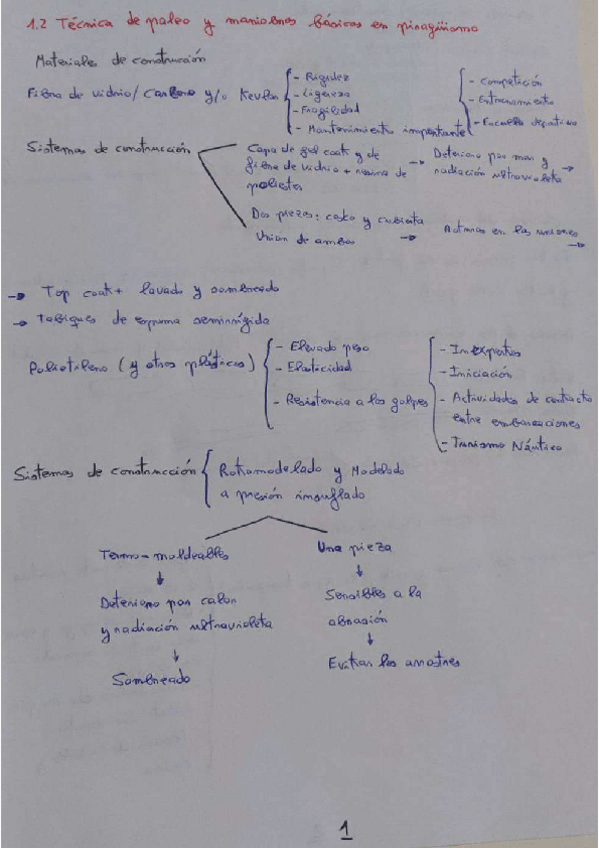 1.2 Técnica de paleo y maniobras básicas en piragüismo
Materiales de construcción
Fibra de vidrio/ Carbono y/o Kevlar
- Rigidez
- Ligereza
- Fragilidad
- Mantenimiento importante
- Competición
- Entrenamiento
- Escuelas deportivas
Sistemas de construcción
Capa de gel coat y de
fibra de vidrio + resina de
poliester
→ Deterioro por mar y →
radiación ultravioleta
Dos piezas: casco y cubierta
Unión de ambas → Achinas en las uniones →
→ Top coat + lavado y sombreado
→ Tabiques de espuma semirrígida
Polietileno (y otros plásticos)
- Elevado peso
- Elasticidad
- Resistencia a los golpes
- Inexpertos
- Iniciación
- Actividades de contacto
entre embarcaciones
- Turismo Náutico
Sistemas de construcción
Rotomodelado y Modelado
a presión insuflado
Termo-moldeables
↓
Deterioro por calor
y radiación ultravioleta
↓
Sombreado
Una pieza
↓
Sensibles a la
abrasión
↓
Evitar los arrastres
1